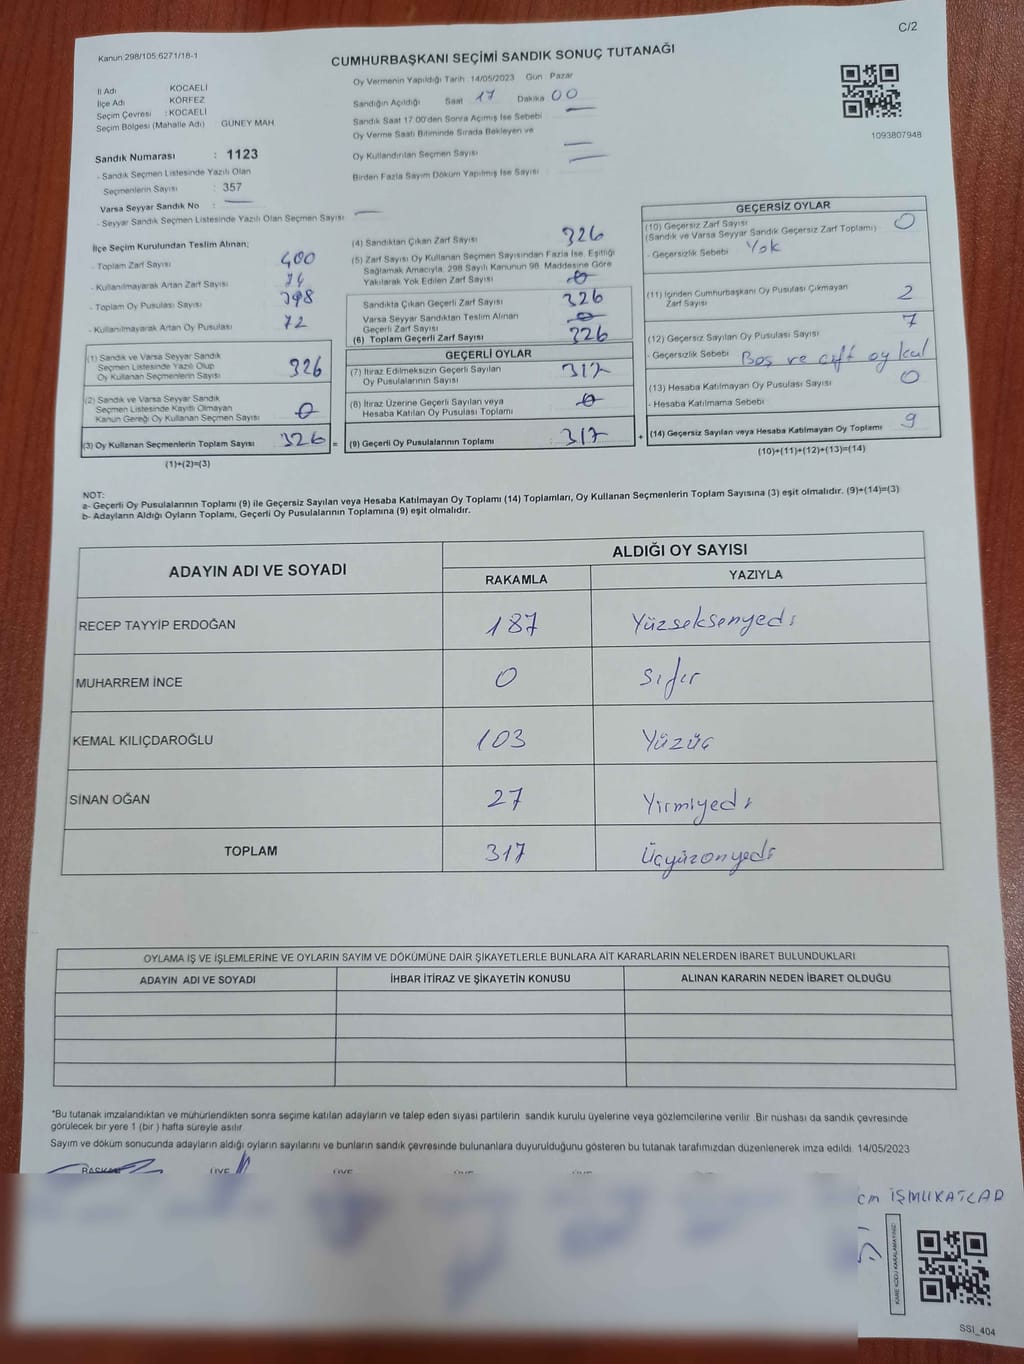 C/2
Kanun 298/105 6271/18-1
CUMHURBAŞKANI SEÇİMİ SANDIK SONUÇ TUTANAĞI
İl Adı KOCAELİ
İlçe Adı KÖRFEZ
Seçim Çevresi : KOCAELİ
Seçim Bölgesi (Mahalle Adı) GÜNEY MAH
Sandık Numarası : 1123
- Sandık Seçmen Listesinde Yazılı Olan
Seçmenlerin Sayısı : 357
Varsa Seyyar Sandık No :
- Seyyar Sandık Seçmen Listesinde Yazılı Olan Seçmen Sayısı
Oy Vermenin Yapıldığı Tarih :14/05/2023 Gün : Pazar
Sandığın Açıldığı Saat 17 Dakika 00
Sandık Saat 17.00'den Sonra Açılmış İse Sebebi
Oy Verme Saati Bitiminde Sırada Bekleyen ve
Oy Kullandırılan Seçmen Sayısı
Birden Fazla Sayım Döküm Yapılmış İse Sayısı
1093807948
İlçe Seçim Kurulundan Teslim Alınan;
- Toplam Zarf Sayısı 400
- Kullanılmayarak Artan Zarf Sayısı 74
- Toplam Oy Pusulası Sayısı 398
- Kullanılmayarak Artan Oy Pusulası 72
(1) Sandık ve Varsa Seyyar Sandık
Seçmen Listesinde Yazılı Olup
Oy Kullanan Seçmenlerin Sayısı 326
(2) Sandık ve Varsa Seyyar Sandık
Seçmen Listesinde Kayıtlı Olmayan
Kanun Gereği Oy Kullanan Seçmen Sayısı 0
(3) Oy Kullanan Seçmenlerin Toplam Sayısı 326 =
(1)+(2)=(3)
(4) Sandıktan Çıkan Zarf Sayısı 326
(5) Zarf Sayısı Oy Kullanan Seçmen Sayısından Fazla İse, Eşitliği
Sağlamak Amacıyla, 298 Sayılı Kanunun 98. Maddesine Göre
Yakılarak Yok Edilen Zarf Sayısı 0
Sandıkta Çıkan Geçerli Zarf Sayısı 326
Varsa Seyyar Sandıktan Teslim Alınan
Geçerli Zarf Sayısı 0
(6) Toplam Geçerli Zarf Sayısı 326
GEÇERLİ OYLAR
(7) İtiraz Edilmeksizin Geçerli Sayılan
Oy Pusulalarının Sayısı 317
(8) İtiraz Üzerine Geçerli Sayılan veya
Hesaba Katılan Oy Pusulası Toplamı 0
(9) Geçerli Oy Pusulalarının Toplamı : 317 +
GEÇERSİZ OYLAR
(10) Geçersiz Zarf Sayısı 0
(Sandık ve Varsa Seyyar Sandık Geçersiz Zarf Toplamı)
- Geçersizlik Sebebi Yok
(11) İçinden Cumhurbaşkanı Oy Pusulası Çıkmayan
Zarf Sayısı 2
(12) Geçersiz Sayılan Oy Pusulası Sayısı 7
- Geçersizlik Sebebi Boş ve çift oy kul
(13) Hesaba Katılmayan Oy Pusulası Sayısı 0
- Hesaba Katılmama Sebebi
(14) Geçersiz Sayılan veya Hesaba Katılmayan Oy Toplamı 9
(10)+(11)+(12)+(13)=(14)
NOT:
a- Geçerli Oy Pusulalarının Toplamı (9) ile Geçersiz Sayılan veya Hesaba Katılmayan Oy Toplamı (14) Toplamları, Oy Kullanan Seçmenlerin Toplam Sayısına (3) eşit olmalıdır. (9)+(14)=(3)
b- Adayların Aldığı Oyların Toplamı, Geçerli Oy Pusulalarının Toplamına (9) eşit olmalıdır.
ADAYIN ADI VE SOYADI ALDIĞI OY SAYISI
RAKAMLA YAZIYLA
RECEP TAYYİP ERDOĞAN 187 Yüzseksenyedi
MUHARREM İNCE 0 Sıfır
KEMAL KILIÇDAROĞLU 103 Yüzüç
SİNAN OĞAN 27 Yirmiyedi
TOPLAM 317 Üçyüzonyedi
OYLAMA İŞ VE İŞLEMLERİNE VE OYLARIN SAYIM VE DÖKÜMÜNE DAİR ŞİKAYETLERLE BUNLARA AİT KARARLARIN NELERDEN İBARET BULUNDUKLARI
ADAYIN ADI VE SOYADI İHBAR İTİRAZ VE ŞİKAYETİN KONUSU ALINAN KARARIN NEDEN İBARET OLDUĞU
*Bu tutanak imzalandıktan ve mühürlendikten sonra seçime katılan adayların ve talep eden siyasi partilerin sandık kurulu üyelerine veya gözlemcilerine verilir. Bir nüshası da sandık çevresinde
görülecek bir yere 1 (bir) hafta süreyle asılır.
Sayım ve döküm sonucunda adayların aldığı oyların sayılarını ve bunların sandık çevresinde bulunanlara duyurulduğunu gösteren bu tutanak tarafımızdan düzenlenerek imza edildi. 14/05/2023
BAŞKAN ÜYE ÜYE
KARE KODU KARALAMAYINIZ!
SSI_404